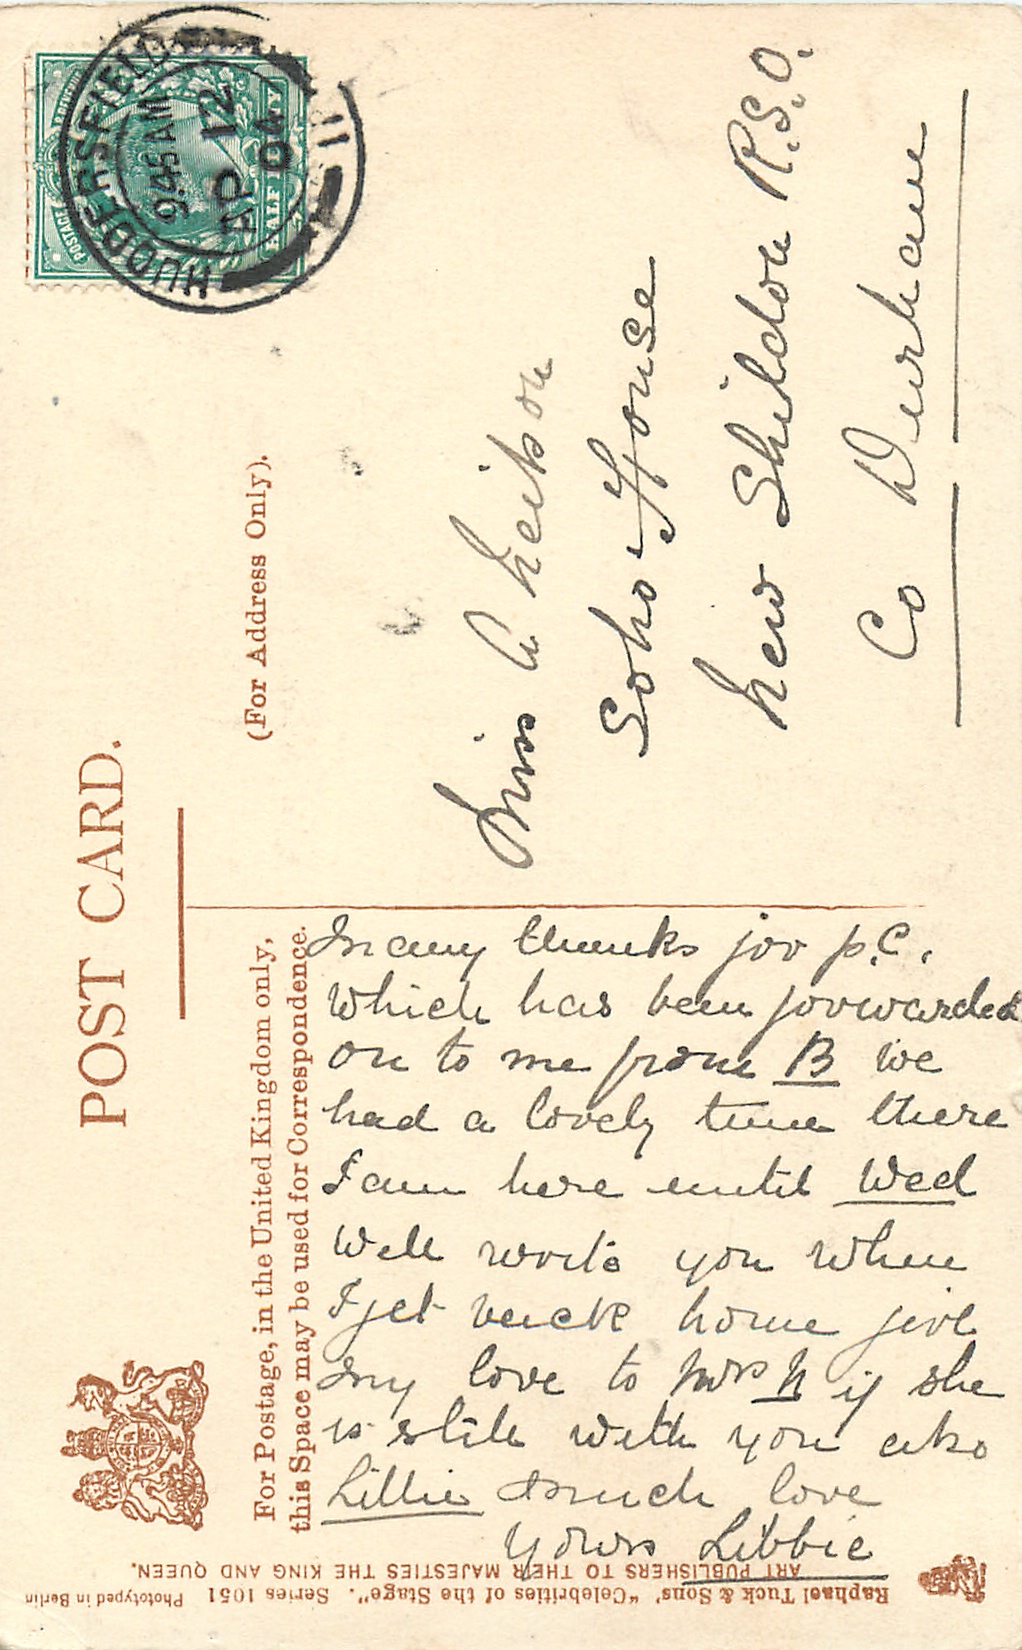 POST CARD.
(For Address Only).
For Postage, in the United Kingdom only,
this Space may be used for Correspondence.
POSTAGE
REVENUE
HALF PENNY
HUDDERSFIELD
9.45 AM
AP 12
04
Miss A Neilson
Soho House
New Shildon R.S.O.
Co Durham
Many thanks for p.c.
which has been forwarded
on to me from B We
had a lovely time there
I am here until Wed
Will write you when
I get back home give
my love to Mrs N if she
is still with you also
Lillie & much love
Yours Libbie
Raphael Tuck & Sons' "Celebrities of the Stage". Series 1051 Phototyped in Berlin
ART PUBLISHERS TO THEIR MAJESTIES THE KING AND QUEEN.